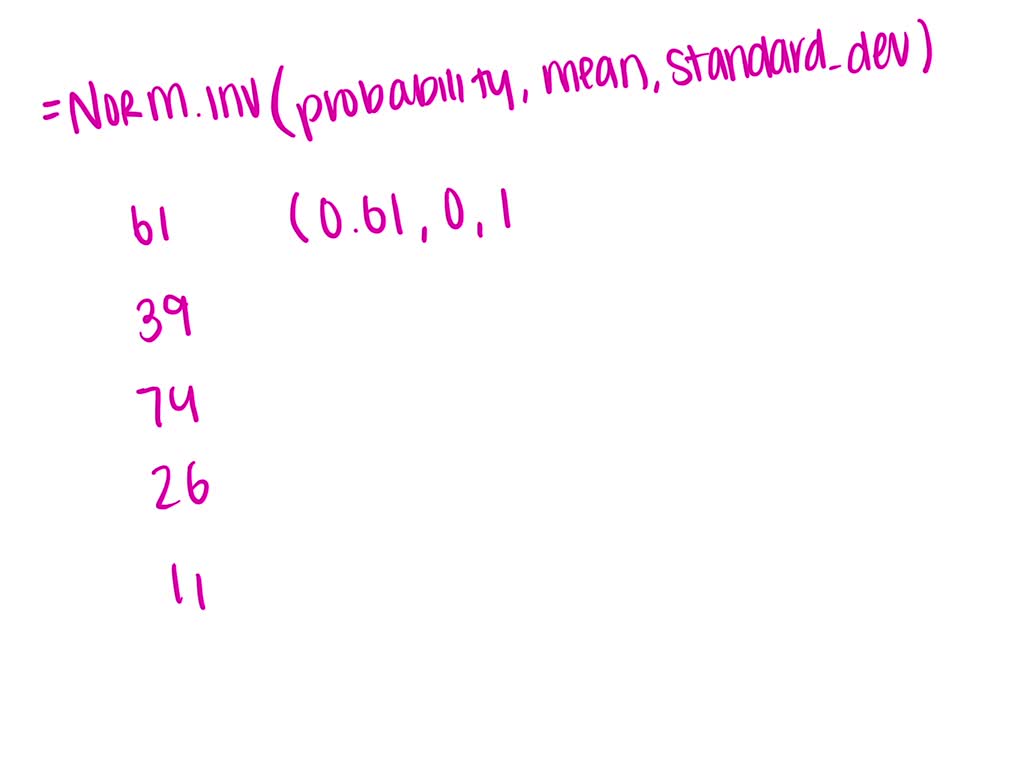 =NORM.INV(probability, mean, standard_dev)
61 (0.61, 0, 1
39
74
26
11